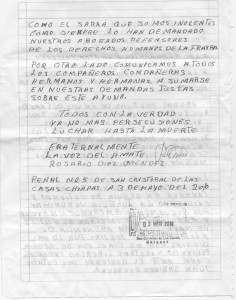 COMO EL SABRA QUE SOMOS INOCENTES
COMO SIEMPRE LO HAN DEMANDADO
NUESTROS ABOGADOS DEFENSORES
DE LOS DERECHOS HUMANOS DE LA FRAYBA
POR OTRO LADO COMUNICAMOS A TODOS
LOS COMPAÑEROS COMPAÑERAS
HERMANOS Y HERMANAS A SUMARSE
EN NUESTRAS DEMANDAS JUSTAS
SOBRE ESTE AYUNO.
TODOS CON LA VERDAD
YA NO MAS PERSECUCIONES
LUCHAR HASTA LA MUERTE
FRATERNALMENTE
LA VOZ DEL AMATE
ROSARIO DIAZ MENDEZ
PENAL NO 5 DE SAN CRISTOBAL DE LAS
CASAS CHIAPAS A 3 DE MAYO DEL 2010